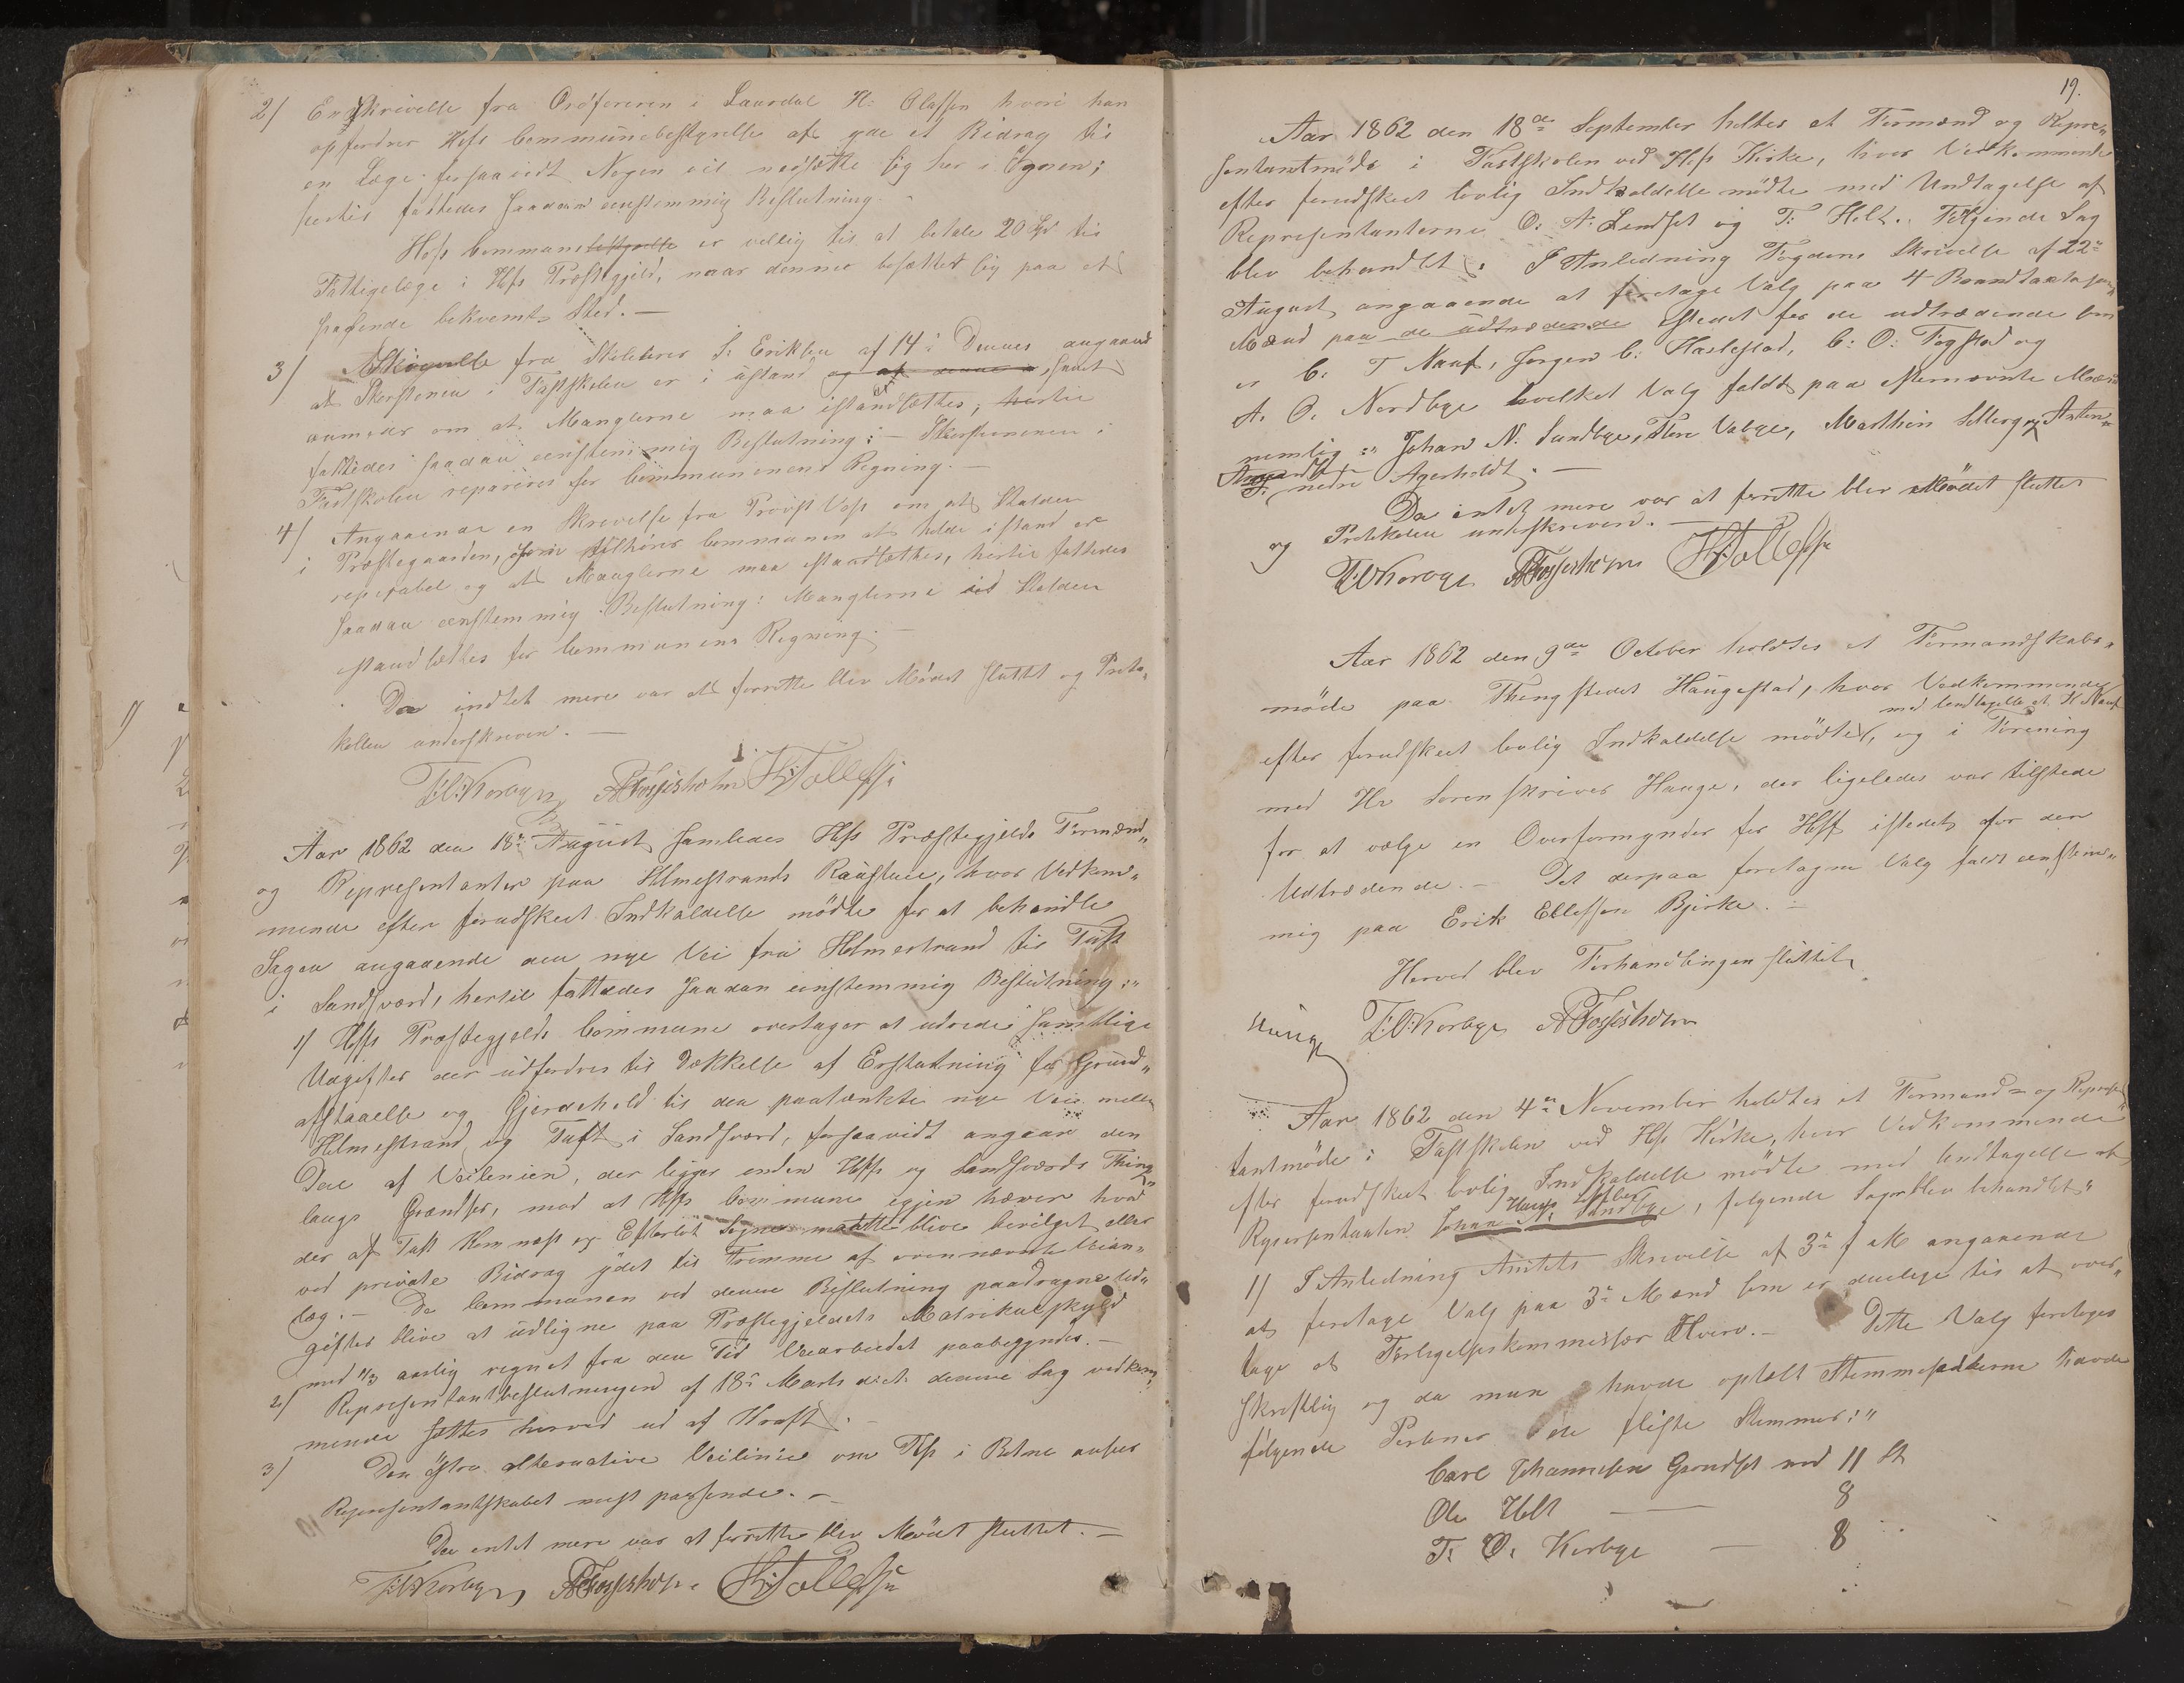 2/ En Skrivelse fra Ordføreren i Laurdal H: Olassen hvori han
opfordrer Hofs Communebestyrelse at yde et Bidrag til
en Læge forsaavidt Nogen vil nedsætte sig her i Egnen;
hertil fattedes saadan eenstemmig Beslutning.
Hofs Communebestyrelse er villig til at betale 20 Spd til
Fattigelæge i Hofs Præstegjeld, naar denne bosætter sig paa et
passende bekvemt Sted. —
3/ Skrivelse fra Skolelærer S: Eriksen af 14de Dennes angaaende
at Skorstenen i Fastskolen er i ustand og at denne samt
anmoder om at Manglerne maa istandsættes; hertil
fattedes saadan eenstemmig Beslutning: — Skorstenene i
Fastskolen repareres for Communenens Regning. —
4/ Angaaende en Skrivelse fra Provst Voss om at Stalden
i Præstegaarden, som tilhører Communen at holde istand er
reparabel og at Manglerne maa istandsættes, hertil fattedes
saadan eenstemmig Beslutning: Manglerne ved Stalden
istandsættes for Communens Regning. —
Da indtet mere var at forrette blev Mødet sluttet og Proto„
kollen underskreven. —
T: O: Korbye A Fossesholm H: Tollefsen
Aar 1862 den 18de August samledes Hofs Præstegjelds Formænd„
og Repræsentanter paa Holmestrands Raastue, hvor Vedkom„
mende efter forudskeet Indkaldelse mødte for at behandle
Sagen angaaende den nye Vei fra Holmestrand til Tuft
i Sandsværd, hertil fattedes saadan eenstemmig Beslutning:„
1/ Hofs Præstegjelds Commune overtager at udrede samtlige
Udgifter der udfordres til Dækkelse af Erstatning for Grund„
afstaaelse og Gjerdehold til den paatænkte nye Vei mellem
Holmestrand og Tuft i Sandsværd, forsaavidt angaar den
Deel af Veilinien, der ligger inden Hofs og Sandsværds Thing„
laugs Grændser, mod at Hofs Commune igjen hæver hvad
der af Tuft Komnæs og Efterløt Sogner maatte blive bevilget eller
ved private Bidrag ydet til Fremme af ovennævnte Veian„
læg. — De Communen ved denne Beslutning paadragne Ud„
gifter blive at udligne paa Præstegjeldets Matrikulskyld
med 1/3 aarlig regnet fra den Tid Veiarbeidet paabegyndes. —
2/ Representantbeslutningen af 18de Marts d: A: denne Sag vedkom„
mende sættes herved ud af Kraft. —
3/ Den østre alternative Veilinie om Fos i Botne ansees
Representantskabet mest passende. —
Da intet mere var at forrette blev Mødet sluttet. —
T: O: Korbye A Fossesholm H: Tollefsen
19.
Aar 1862 den 18de September holdtes et Formænd og Repræ„
sentantmøde i Fastskolen ved Hofs Kirke, hvor Vedkommende
efter forudskeet lovlig Indkaldelse mødte med Undtagelse af
Representanterne O: A: Lendset og T: Holt. Følgende Sag
blev behandlet: I Anledning Fogdens Skrivelse af 22de
August angaaende at foretage Valg paa 4 Brandtaxations„
Mænd paa de udtrædende istedet for de udtrædende som
er C: T Nauf, Jørgen C: Haslestad, C: O: Fogstad og
A. O. Nordbye hvilket Valg faldt paa efternævnte Mænd
nemlig:„ Johan N. Sundbye, Thore Vabye, Marthin Solberg og Anton
Amundsen nedre Agerholdt. —
Da intet mere var at forrette blev Mødet sluttet
og Protokollen underskreven. —
T: O: Korbye A Fossesholm H: Tollefsen
Aar 1862 den 9de October holdtes et Formandskabs„
møde paa Thingstedet Haugestad, hvor Vedkommende
med Undtagelse af K Nauf
efter forudskeet lovlig Indkaldelse mødte, og i Forening
med Hr Sorenskriver Hauge, der ligeledes var tilstede
for at vælge en Overformynder for Hof istedet for den
Udtrædende. — Det derpaa foretagne Valg faldt eenstem„
mig paa Erik Ellefsen Bjerke. —
Herved blev Forhandlingen sluttet
Hauge T: O: Korbye A Fossesholm
Aar 1862 den 4de November holdtes et Formand= og Represen„
tantmøde i Fastskolen ved Hofs Kirke, hvor Vedkommende
efter forudskeet lovlig Indkaldelse mødte med Undtagelse af
Representanten Johan N: Sundbye, følgende Sager blev behandlet„
1/ I Anledning Amtets Skrivelse af 3de f M angaaende
at foretage Valg paa 3de Mænd som er duelige til at over„
tage et Forligelseskommissær Hverv. — Dette Valg foretoges
skriftlig og da man havde optalt Stemmesedlerne havde
følgende Personer de fleste Stemmer:„
Carl Johannesen Grundset med 11 St
Ole Holt — 8
T: O: Korbye — 8